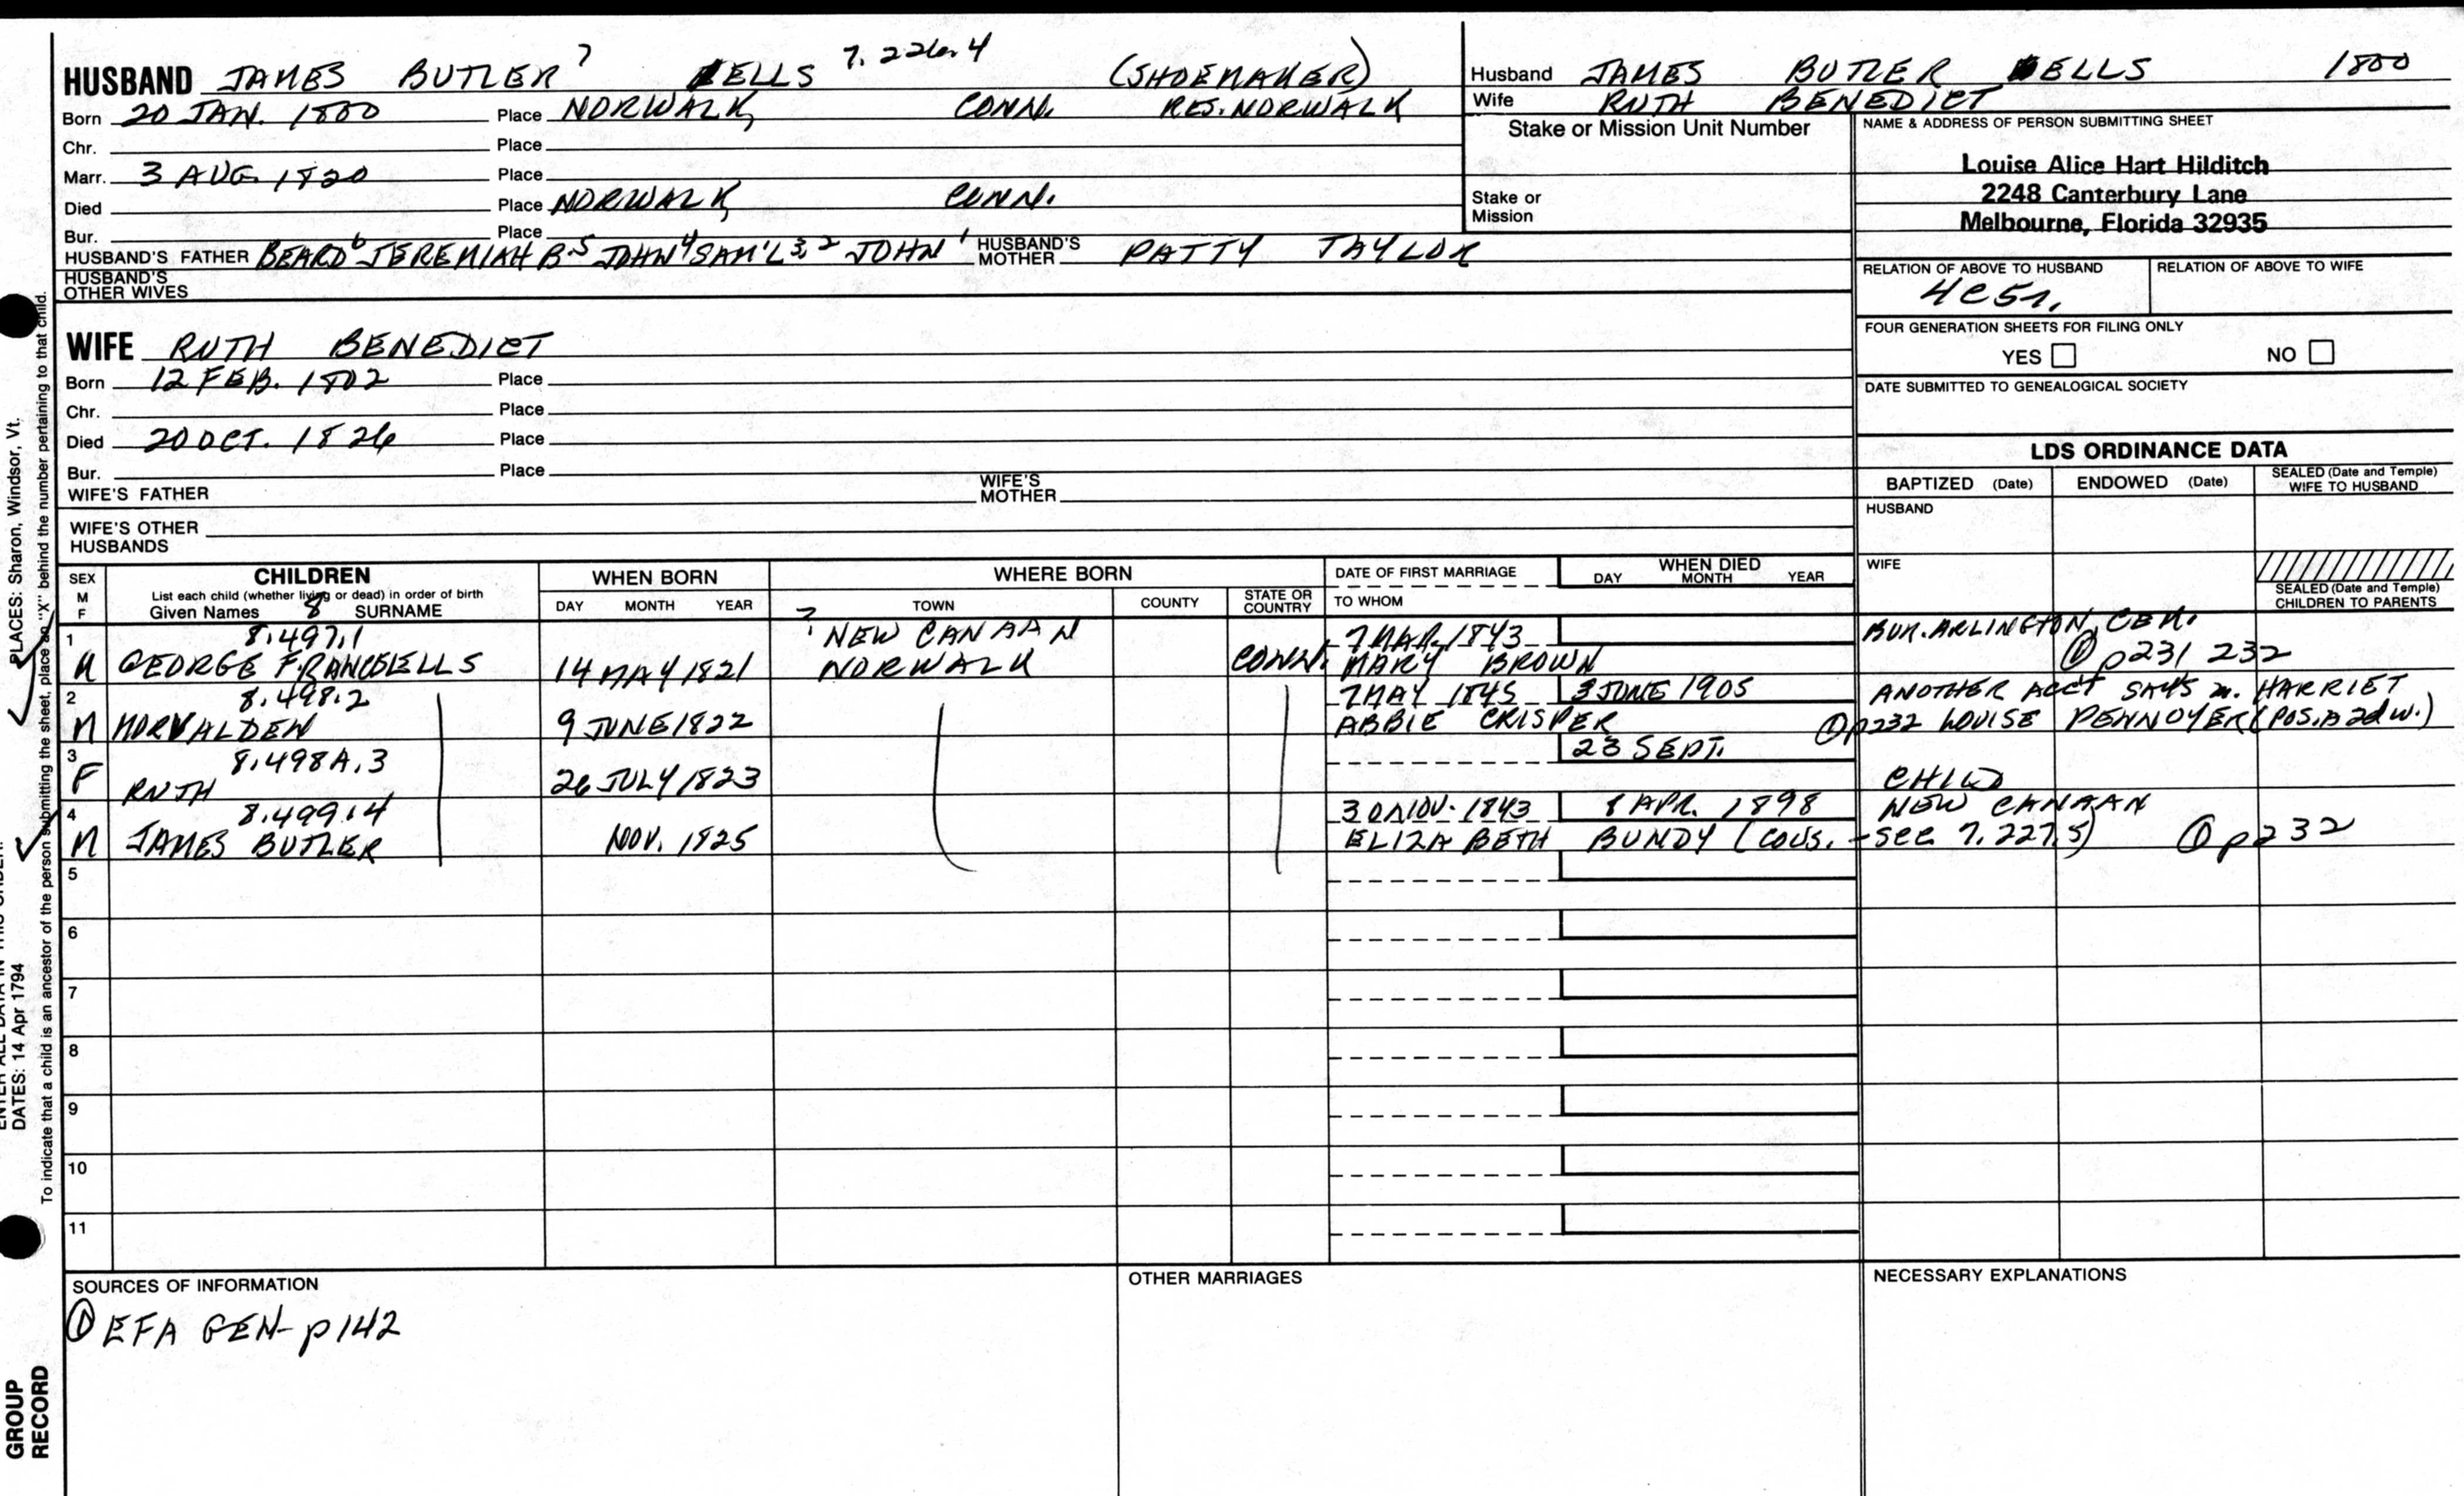 HUSBAND JAMES BUTLER 7 ELLS 7.226.4 (SHOEMAKER)
Born 20 JAN. 1800 Place NORWALK, CONN. RES. NORWALK
Chr. Place
Marr. 3 AUG. 1820 Place
Died Place NORWALK, CONN.
Bur. Place
HUSBAND'S FATHER BEARD 6 JEREMIAH B 5 JOHN 4 SAM'L 3, 2 JOHN 1 HUSBAND'S MOTHER PATTY TAYLOR
HUSBAND'S OTHER WIVES
WIFE RUTH BENEDICT
Born 12 FEB. 1802 Place
Chr. Place
Died 20 OCT. 1826 Place
Bur. Place
WIFE'S FATHER WIFE'S MOTHER
WIFE'S OTHER HUSBANDS
Husband JAMES BUTLER ELLS 1800
Wife RUTH BENEDICT
Stake or Mission Unit Number
Stake or Mission
NAME & ADDRESS OF PERSON SUBMITTING SHEET
Louise Alice Hart Hilditch
2248 Canterbury Lane
Melbourne, Florida 32935
RELATION OF ABOVE TO HUSBAND RELATION OF ABOVE TO WIFE
4C5r.
FOUR GENERATION SHEETS FOR FILING ONLY
YES NO
DATE SUBMITTED TO GENEALOGICAL SOCIETY
LDS ORDINANCE DATA
BAPTIZED (Date) ENDOWED (Date) SEALED (Date and Temple) WIFE TO HUSBAND
HUSBAND
WIFE
SEALED (Date and Temple) CHILDREN TO PARENTS
SEX M F
CHILDREN
List each child (whether living or dead) in order of birth
Given Names 8 SURNAME
WHEN BORN
DAY MONTH YEAR
WHERE BORN
TOWN COUNTY STATE OR COUNTRY
DATE OF FIRST MARRIAGE
TO WHOM
WHEN DIED
DAY MONTH YEAR
1 8.497.1 ? NEW CANAAN 7 MAR. 1843 BUR. ARLINGTON, CEM.
M GEORGE FRANCIS ELLS 14 MAY 1821 NORWALK CONN. MARY BROWN ① p231 232
2 8.498.2 7 MAY 1845 3 JUNE 1905 ANOTHER ACCT SAYS m. HARRIET
M 9 JUNE 1822 ABBIE CRISPER ① p232 LOUISE PENNOYER (POS. A 2d w.)
3 8.498A.3 23 SEPT.
F RUTH 26 JULY 1823 CHILD
4 8.499.4 30 NOV. 1843 8 APR. 1898 NEW CANAAN
M JAMES BUTLER NOV. 1825 ELIZABETH BUNDY (COUS. - SEE 7.227.5) ① p232
5
6
7
8
9
10
11
SOURCES OF INFORMATION
① EFA GEN- p142
OTHER MARRIAGES
NECESSARY EXPLANATIONS
PLACES: Sharon, Windsor, Vt.
DATES: 14 Apr 1794
To indicate that a child is an ancestor of the person submitting the sheet, place an "X" behind the number pertaining to that child.
GROUP
RECORD